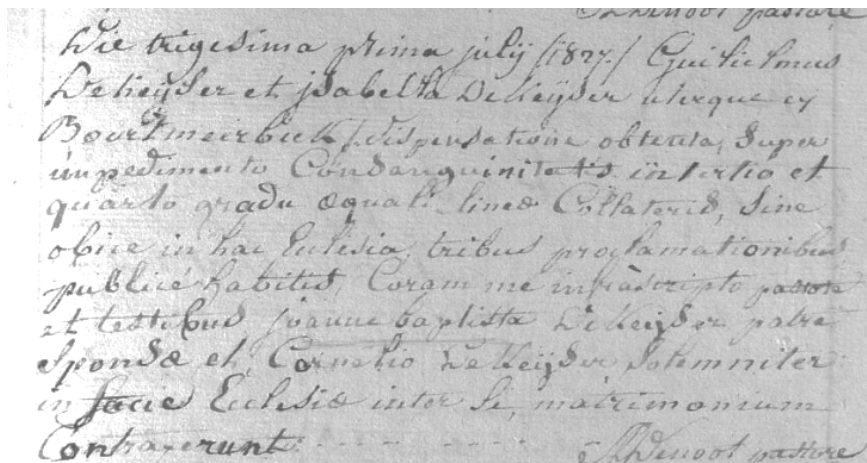 pastore
Die trigesima prima julij /1827./ Guilielmus
DeKeyser et jsabella DeKeyser uterque ex
Bourtmeirbeek /dispensatione obtenta, super
impedimento Consanguinitatis in tertio et
quarto gradu æquali lineæ Collateris, Sine
obice in hac Ecclesia, tribus proclamationibus
publicé habitis, Coram me infrascripto pastore
et testibus joanne baptista DeKeyser patre
Sponsæ et Cornelio DeKeyser Solemniter
in facie Ecclesiæ inter se, matrimonium
Contraxerunt. - - - - pastore